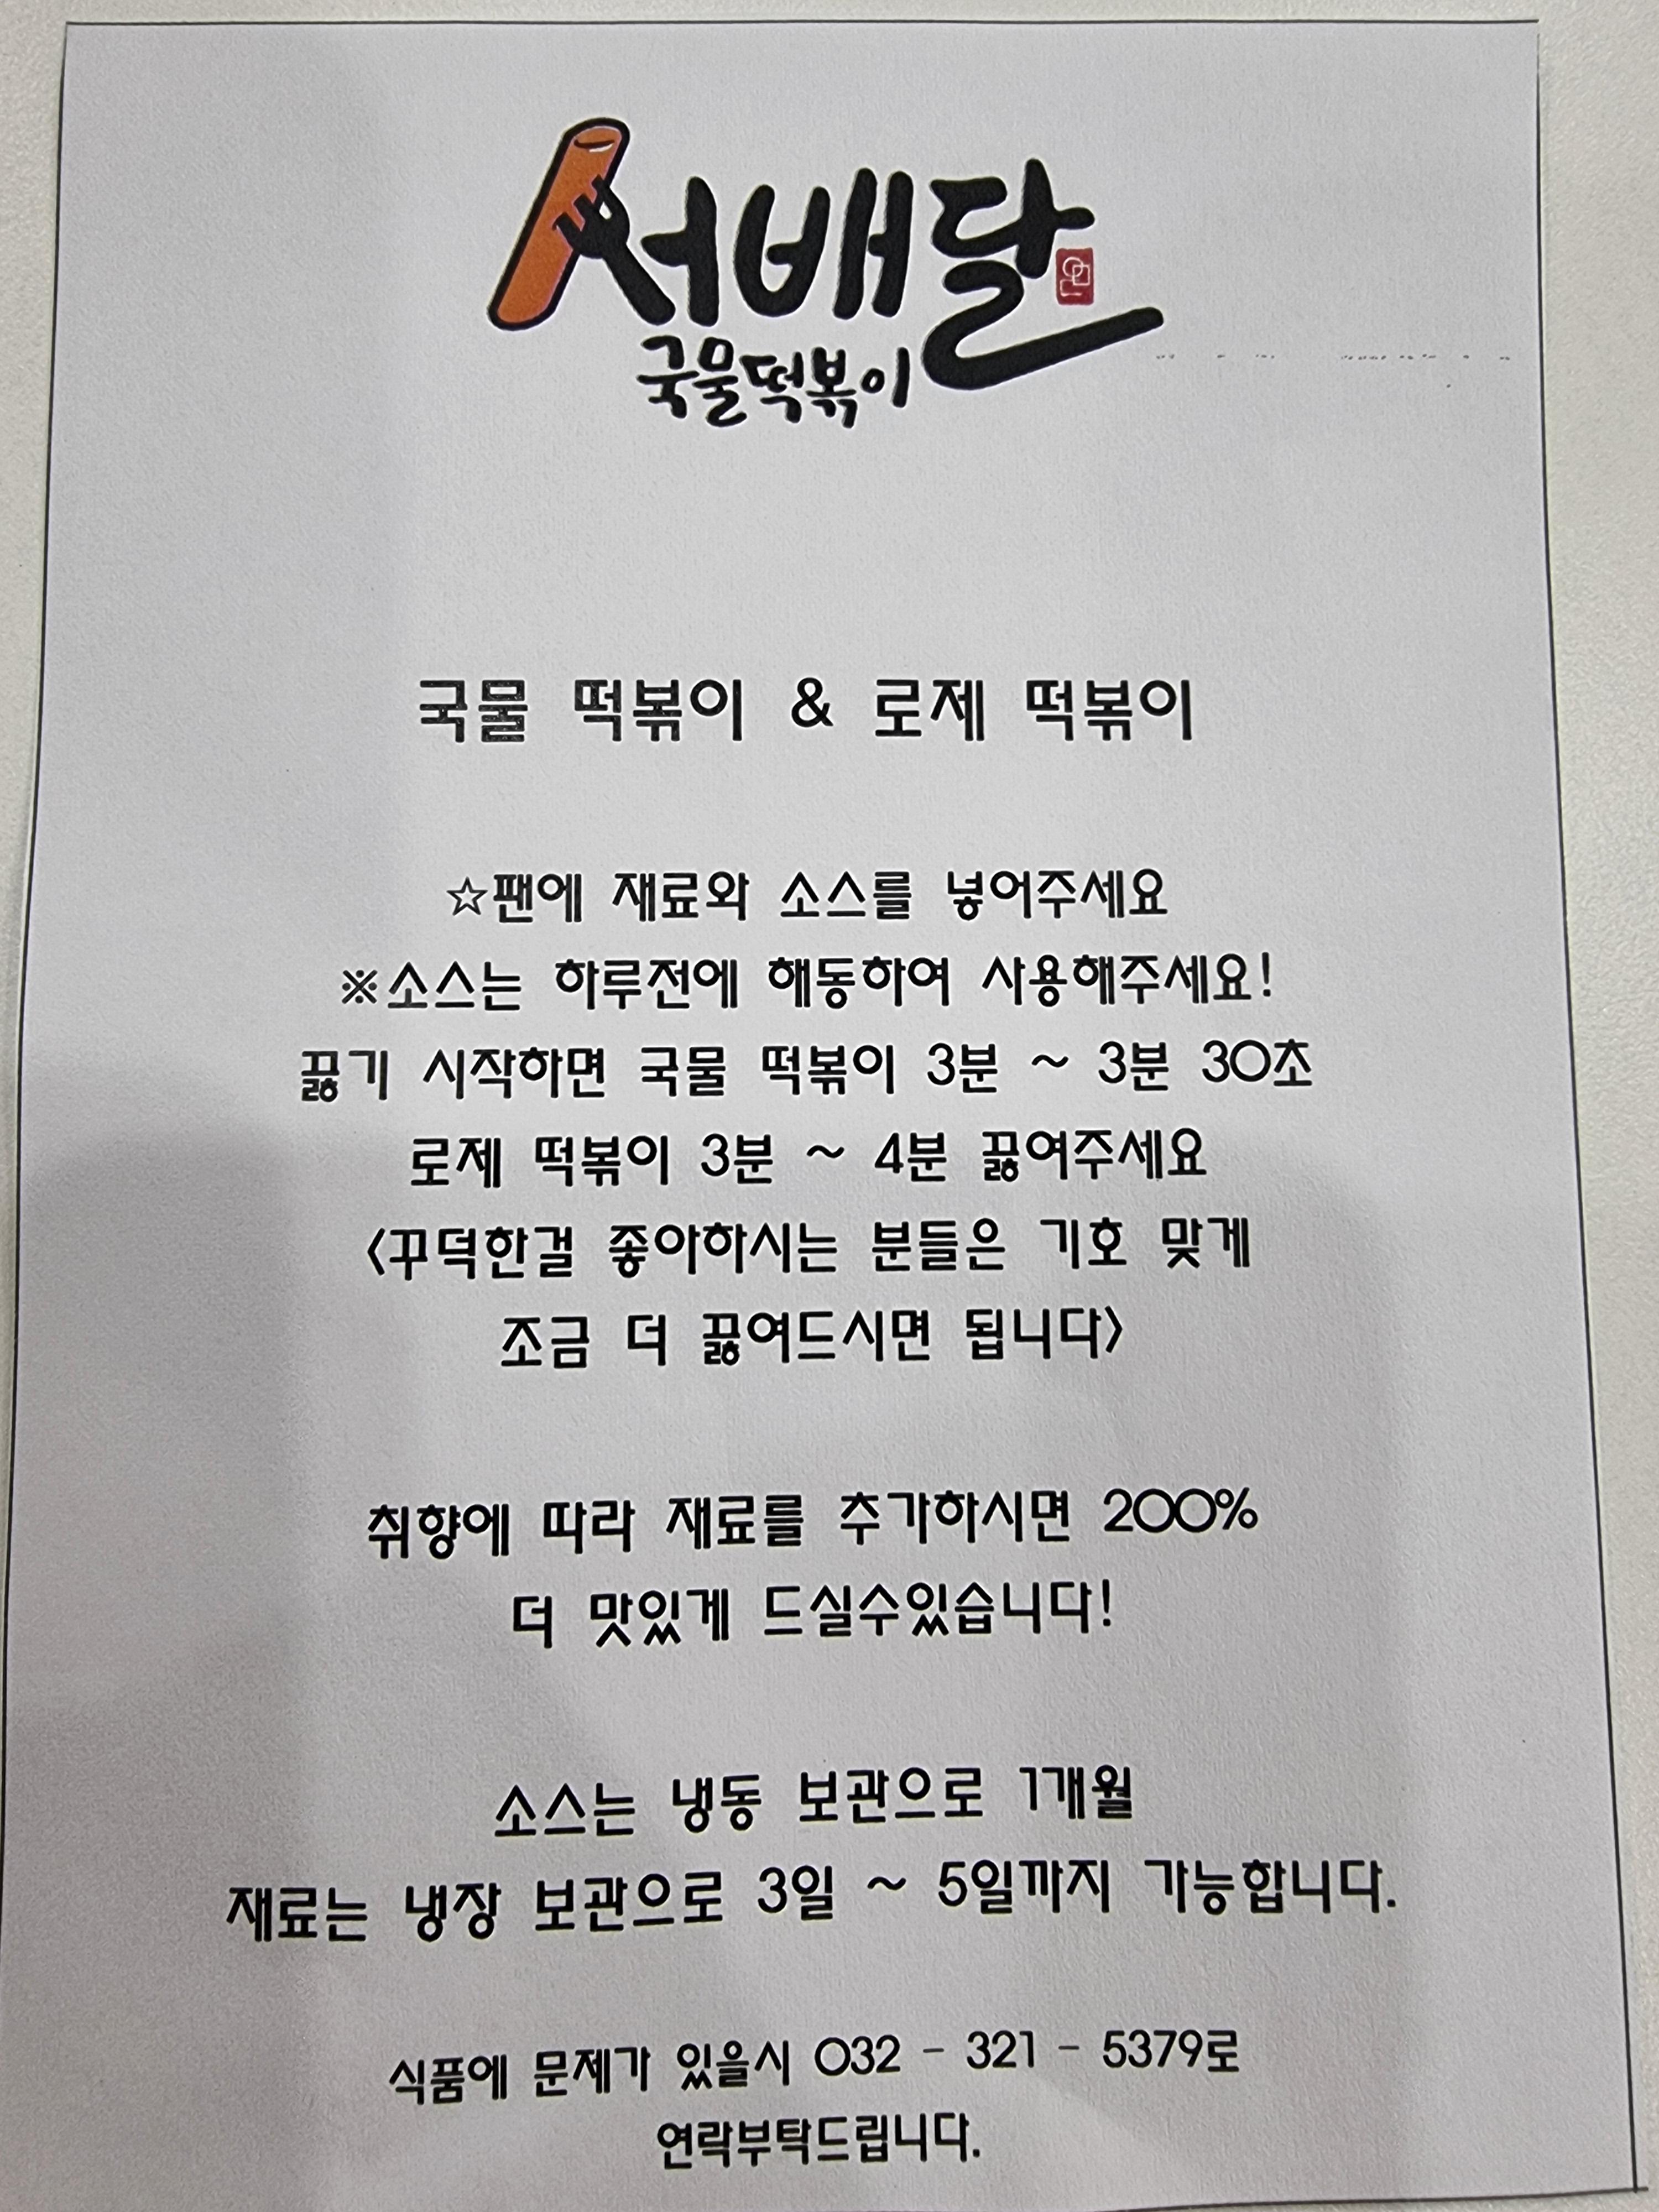 서배달
국물떡볶이
국물 떡볶이 & 로제 떡볶이
☆팬에 재료와 소스를 넣어주세요
※소스는 하루전에 해동하여 사용해주세요!
끓기 시작하면 국물 떡볶이 3분 ~ 3분 30초
로제 떡볶이 3분 ~ 4분 끓여주세요
<꾸덕한걸 좋아하시는 분들은 기호 맞게
조금 더 끓여드시면 됩니다>
취향에 따라 재료를 추가하시면 200%
더 맛있게 드실수있습니다!
소스는 냉동 보관으로 1개월
재료는 냉장 보관으로 3일 ~ 5일까지 가능합니다.
식품에 문제가 있을시 032 - 321 - 5379로
연락부탁드립니다.